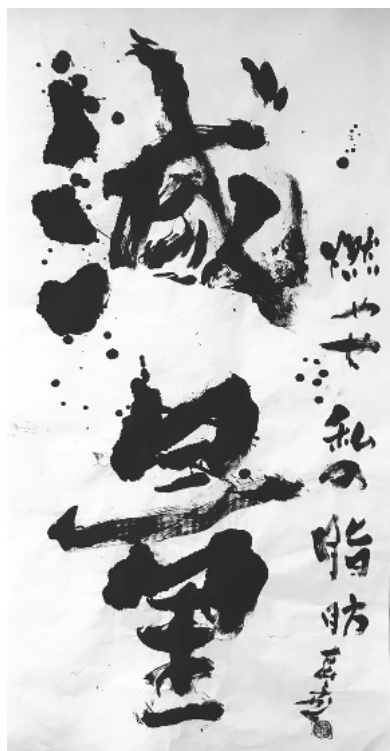 減量
燃やせ 私の脂肪